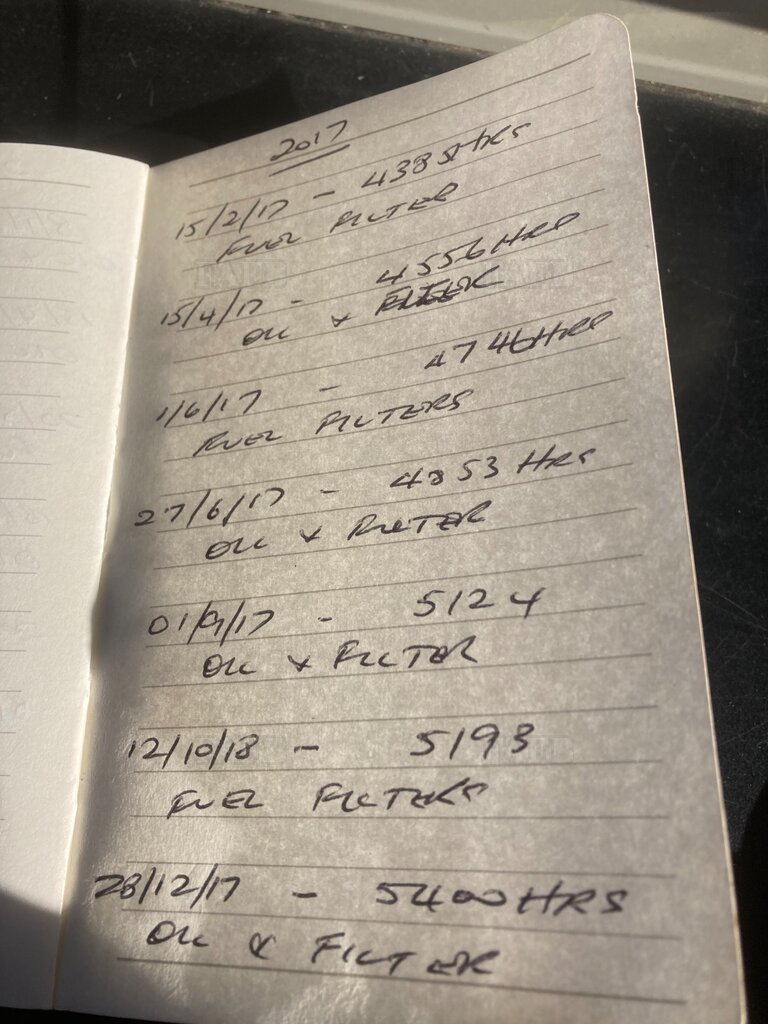 2017
15/2/17 - 4385HRS
FUEL FILTER
15/4/17 - 4556HRS
OIL & FILTER
1/6/17 - 4746HRS
FUEL FILTERS
27/6/17 - 4853 HRS
OIL & FILTER
01/9/17 - 5124
OIL & FILTER
12/10/18 - 5193
FUEL FILTERS
28/12/17 - 5400HRS
OIL & FILTER